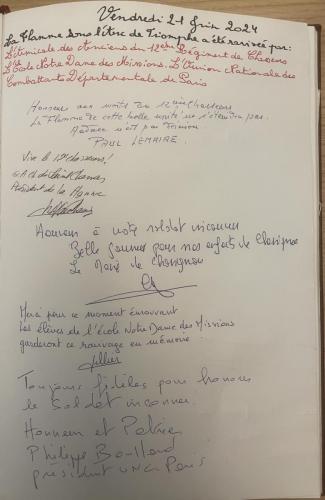 Vendredi 21 Juin 2024
La Flamme sous l'Arc de Triomphe a été ravivée par:
L'Amicale des Anciens du 12ème Régiment de Chasseurs
L'Ecole Notre Dame des Missions. L'Union Nationale des
Combattants Départementale de Paris
Honneur aux morts du 12 Chasseurs
La Flamme de cette belle unité ne s'éteindra pas.
Adieu n'est pas
PAUL LEMAIRE
Vive le 12e chasseurs!
Président de la Flamme
Honneur à notre soldat inconnu
Belle journée pour nos enfants de
Le Maire de
Merci pour ce moment émouvant
Les élèves de l'école Notre Dame des Missions
garderont ce ravivage en mémoire
Toujours fidèles pour honorer
le Soldat inconnu
Honneur et Patrie
Philippe
président UNC Paris